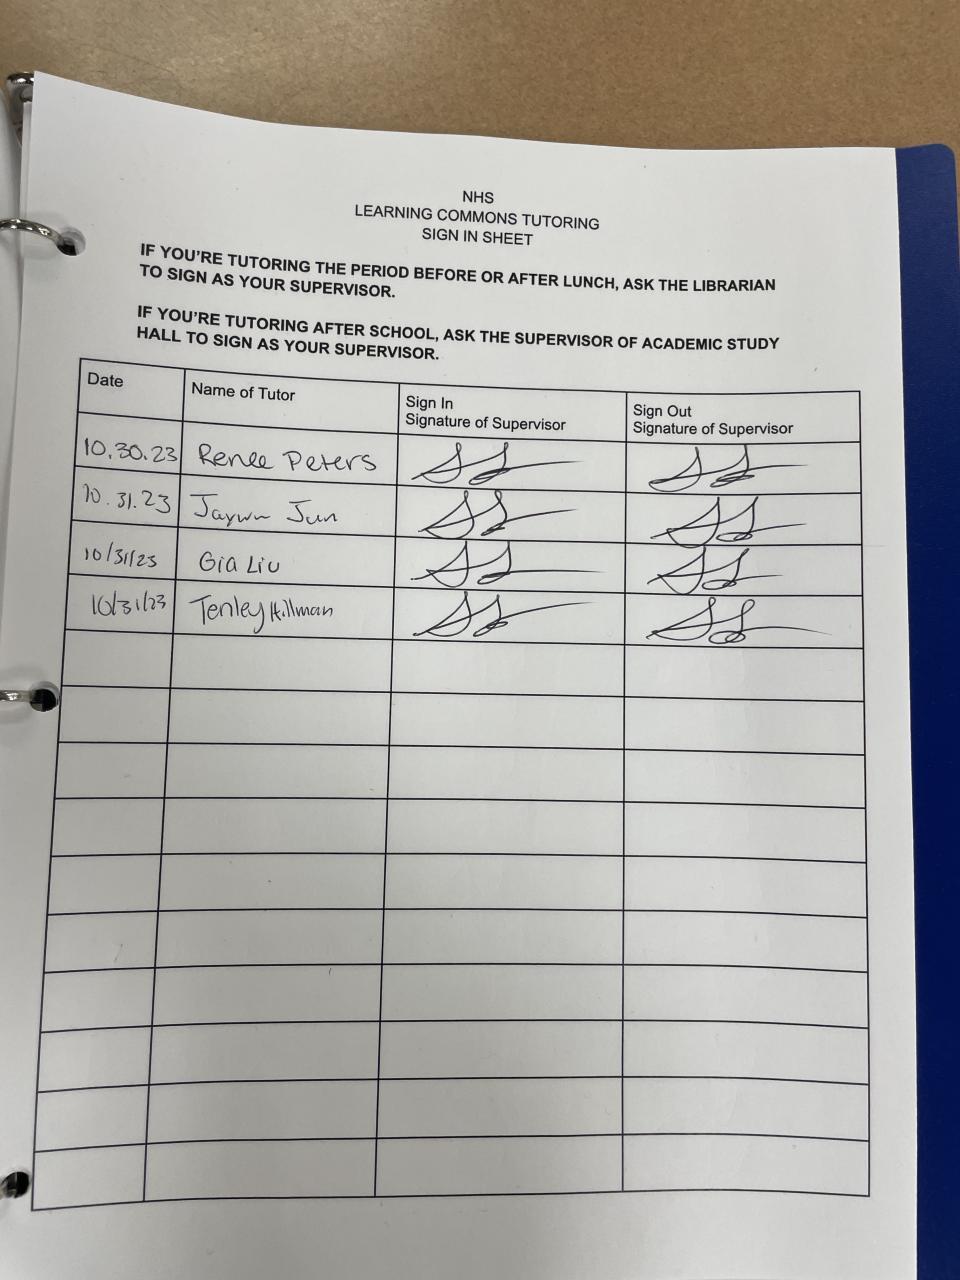 NHS
LEARNING COMMONS TUTORING
SIGN IN SHEET
IF YOU'RE TUTORING THE PERIOD BEFORE OR AFTER LUNCH, ASK THE LIBRARIAN
TO SIGN AS YOUR SUPERVISOR.
IF YOU'RE TUTORING AFTER SCHOOL, ASK THE SUPERVISOR OF ACADEMIC STUDY
HALL TO SIGN AS YOUR SUPERVISOR.
Date Name of Tutor Sign In Sign Out
Signature of Supervisor Signature of Supervisor
10.30.23 Renee Peters
10.31.23 Jun
10/31/23 Gia Liu
10/31/23 Tenley Hillman